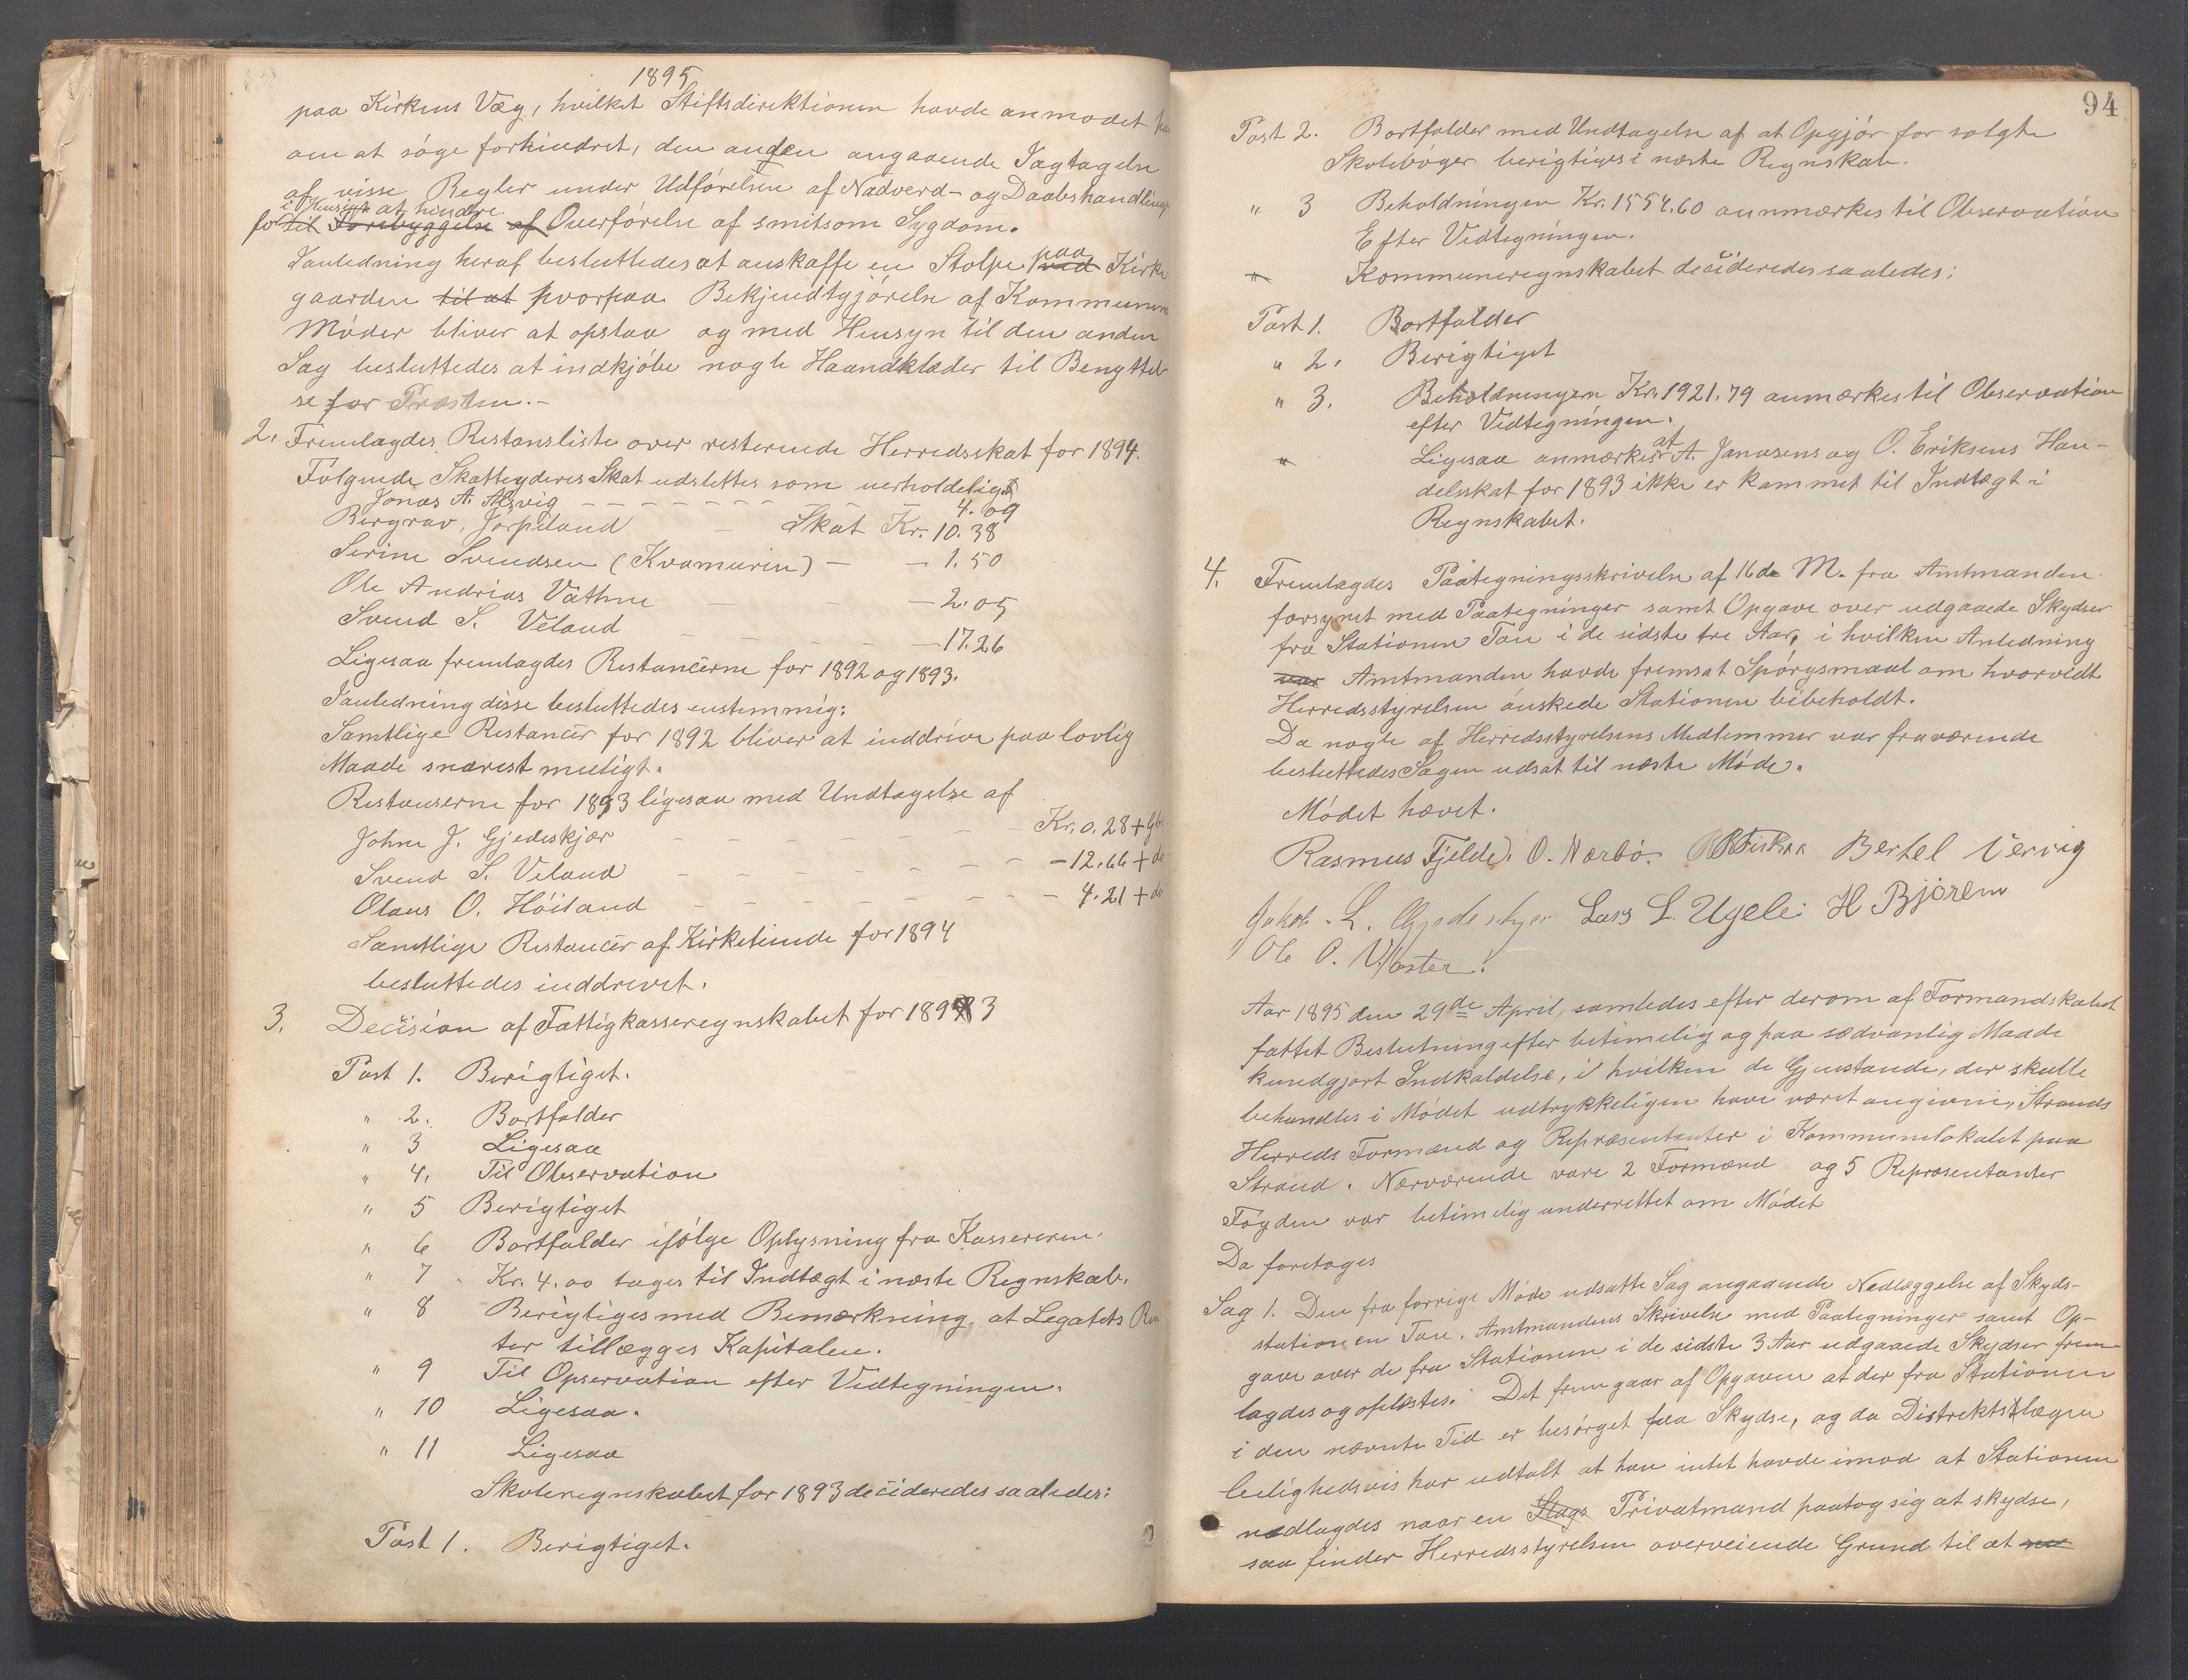 1895
paa Kirkens Væg, hvilket Stiftsdirektionen havde anmodet
om at søge forhindret, den anden angaaende Iagtagelse
af visse Regler under Udførelsen af Nadverd- og Daabshandlinger
i Hensigt at hindre
for til Forebyggelse af Overførelse af smitsom Sygdom.
Ianledning heraf besluttedes at anskaffe en Stolpe paa ved Kirke
gaarden til at hvorpaa Bekjendtgjørelse af Kommunens
Møder bliver at opslaa og med Hensyn til den anden
Sag besluttedes at indkjøbe nogle Haandklæder til Benyttel
se for Præsten.-
2. Fremlagdes Restanseliste over resterende Herredsskat for 1894.
Følgende Skatteyderes Skat udslettes som uerholdeligt
Jonas A. Alsvig 4.09
Bergrav, Jørpeland Skat Kr. 10.38
Serine Svendsen (Kvamurin) - - 1.50
Ole Andreas Vathne - 2.05
Svend S. Veland - 17.26
Ligesaa fremlagdes Restancerne for 1892 og 1893.
Ianledning disse besluttedes enstemmig:
Samtlige Restancer for 1892 bliver at inddrive paa lovlig
Maade snarest muligt.
Restanserne for 1893 ligesaa med Undtagelse af
John J. Gjedeskjær Kr. 0.28 +
Svend S. Veland - 12.66 + do
Olaus O. Høiland - 4.21 + do
Samtlige Restancer af Kirketiende for 1894
besluttedes inddrevet.
3. Decision af Fattigkasseregnskabet for 1893
Post 1. Berigtiget.
" 2. Bortfalder
" 3 Ligesaa
" 4. Til Observation
" 5 Berigtiget
" 6 Bortfalder ifølge Oplysning fra Kassereren.
" 7 Kr. 4.00 tages til Indtægt i næste Regnskab.
" 8 Berigtiges med Bemærkning, at Legatets Ren
ter tillægges Kapitalen.
" 9 Til Opservation efter Vedtegningen.
" 10 Ligesaa.
" 11 Ligesaa
Skoleregnskabet for 1893 decideredes saaledes:
Post 1. Berigtiget.
94
Post 2. Bortfalder med Undtagelse af at Opgjør for solgte
Skolebøger berigtiges i næste Regnskab.
" 3 Beholdningen Kr. 1554.60 anmærkes til Observation
Efter Vedtegningen.
" Kommuneregnskabet decideredes saaledes:
Post 1. Bortfalder
" 2. Berigtiget
" 3. Beholdningen Kr. 1921.79 anmærkes til Observation
efter Vedtegningen.
" Ligesaa anmærkes at A. Janasens og O. Eriksens Han-
delsskat for 1893 ikke er kommet til Indtægt i
Regnskabet.
4. Fremlagdes Paategningsskrivelse af 16de M. fra Amtmanden
forsynet med Paategninger samt Opgave over udgaaede Skydser
fra Stationen Tau i de sidste tre Aar, i hvilken Anledning
var Amtmanden havde fremsat Spørgsmaal om hvorvidt
Herredsstyrelsen ønskede Stationen bibeholdt.
Da nogle af Herredsstyrelsens Medlemmer var fraværende
besluttedes Sagen udsat til næste Møde.
Mødet hævet.
Rasmus Fjelde. O. Nærbø. Bertel Vervig
Jakob L. Gjedeskjær Lars L. Ugeli H Bjøreim
Ole O. Voster.
Aar 1895 den 29de April, samledes efter derom af Formandskabet
fattet Beslutning efter betimelig og paa sædvanlig Maade
kundgjort Indkaldelse, i hvilken de Gjenstande, der skulle
behandles i Mødet udtrykkeligen have været angivne, Strands
Herreds Formænd og Repræsentanter i Kommunelokalet paa
Strand. Nærværende vare 2 Formænd og 5 Repræsentanter
Fogden var betimelig underrettet om Mødet
Da foretoges
Sag 1. Den fra forrige Møde udsatte Sag angaaende Nedlæggelse af Skyds-
stationen Tau. Amtmandens Skrivelse med Paategninger samt Op-
gave over de fra Stationen i de sidste 3 Aar udgaaede Skydser frem
lagdes og oplæstes. Det fremgaar af Opgaven at der fra Stationen
i den nævnte Tid er besørget faa Skydse, og da Distriktslægen
leilighedsvis har udtalt at han intet havde imod at Stationen
nedlagdes naar en Slags Privatmand paatog sig at skydse,
saa finder Herredsstyrelsen overveiende Grund til at